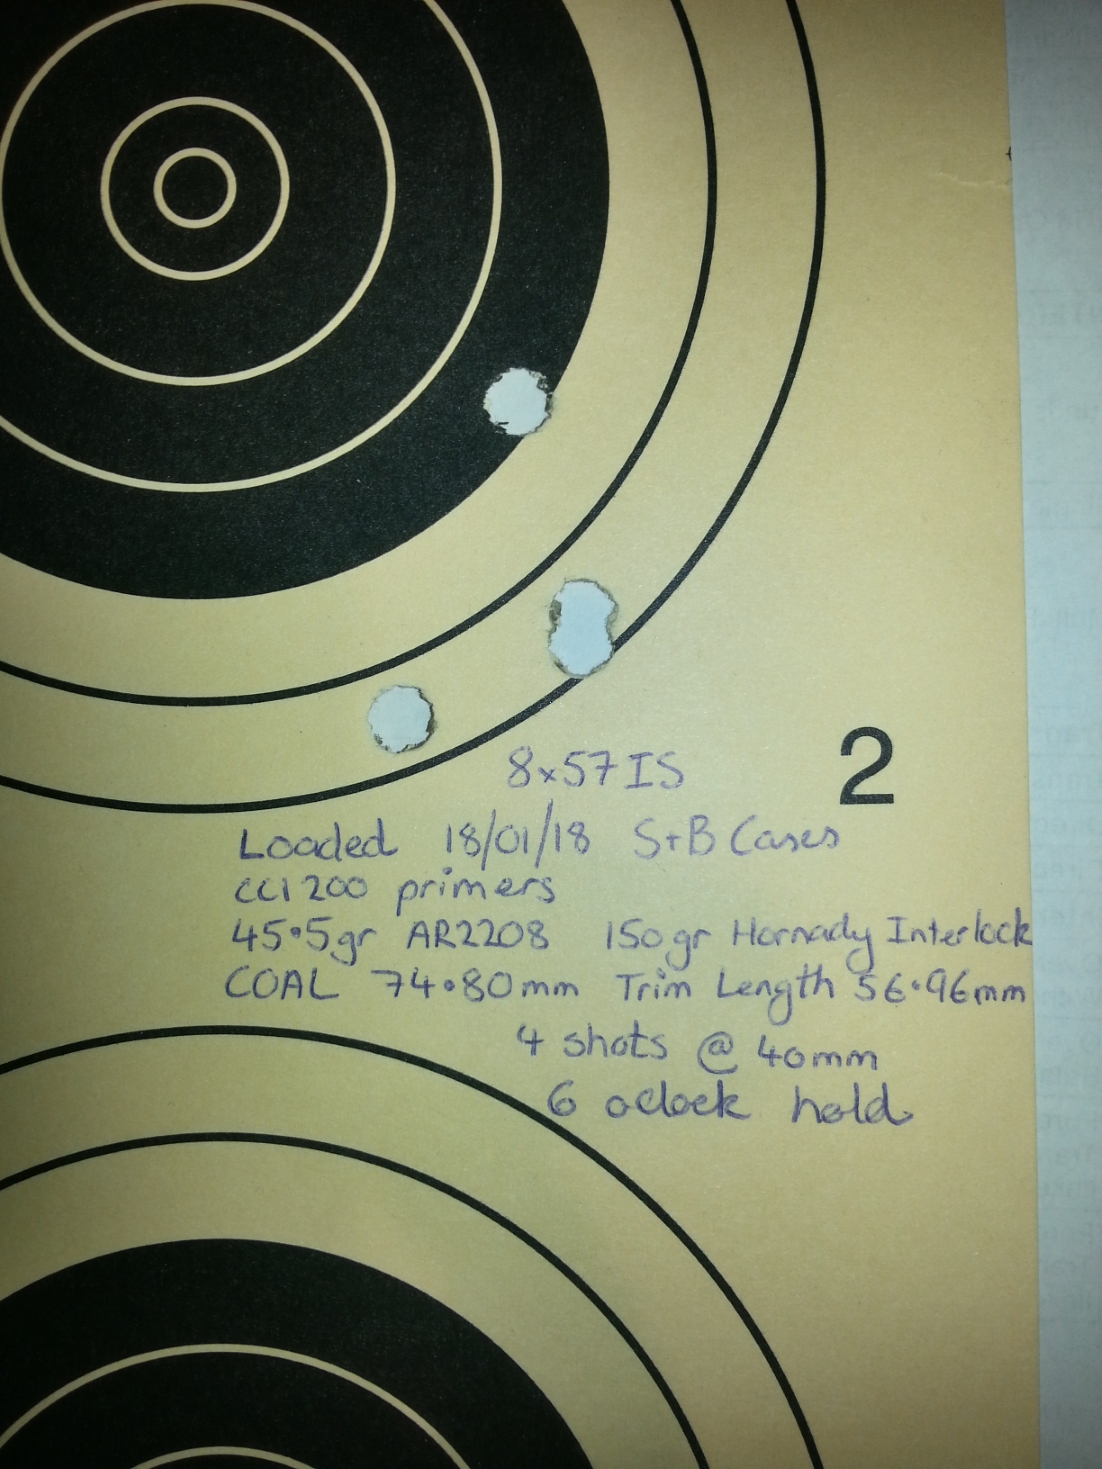 2
8x57 IS
Loaded 18/01/18 S+B Cases
CCI 200 primers
45.5gr AR2208 150gr Hornady Interlock
COAL 74.80mm Trim Length 56.96mm
4 shots @ 40mm
6 oclock hold